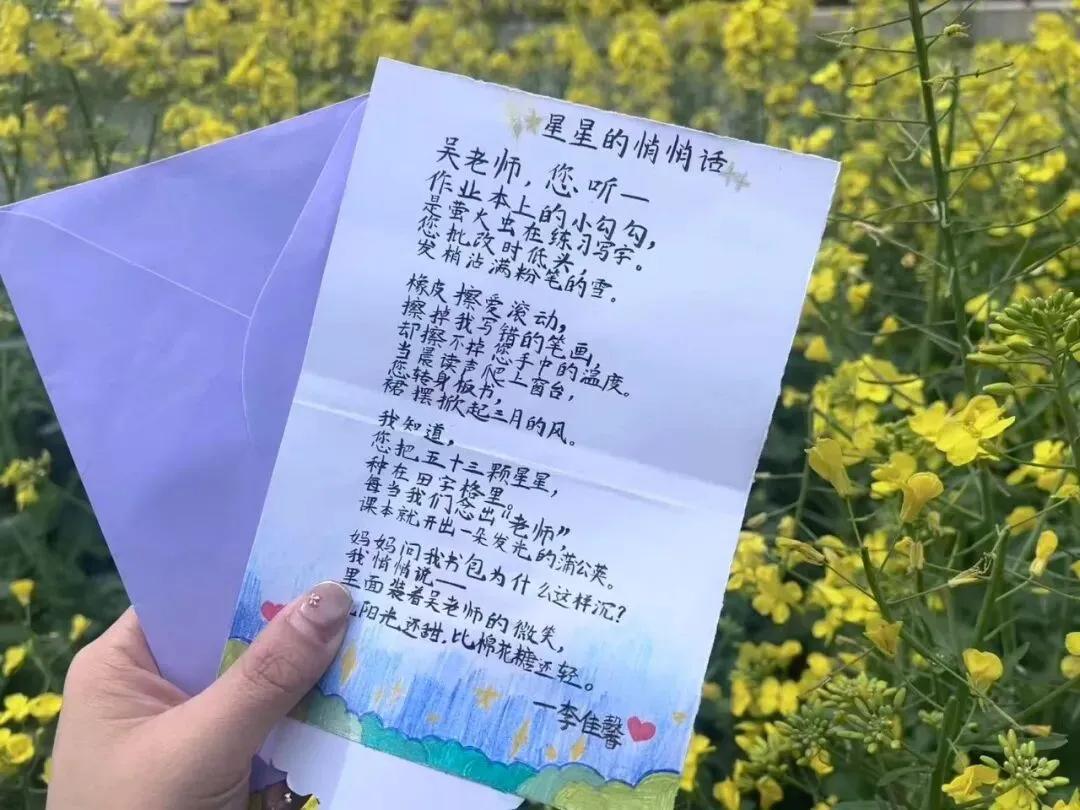 星星的悄悄话
吴老师，您听—
作业本上的小勾勾，
是萤火虫在练习写字。
您批改时低头，
发梢沾满粉笔的雪。
橡皮擦爱滚动，
擦掉我写错的笔画，
却擦不掉您手中的温度。
当晨读声爬上窗台，
您转身板书，
裙摆掀起三月的风。
我知道，
您把五十三颗星星，
种在田字格里。
每当我们念出“老师”，
课本就开出一朵发光的蒲公英。
妈妈问我书包为什么这样沉？
我悄悄说——
里面装着吴老师的微笑，
阳光还甜，比棉花糖还轻。
—李佳馨